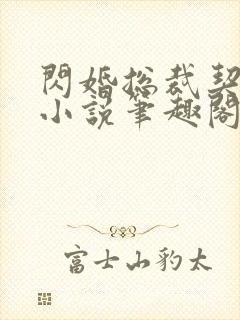 閃婚總裁契
小說筆趣閣
富士山豹太